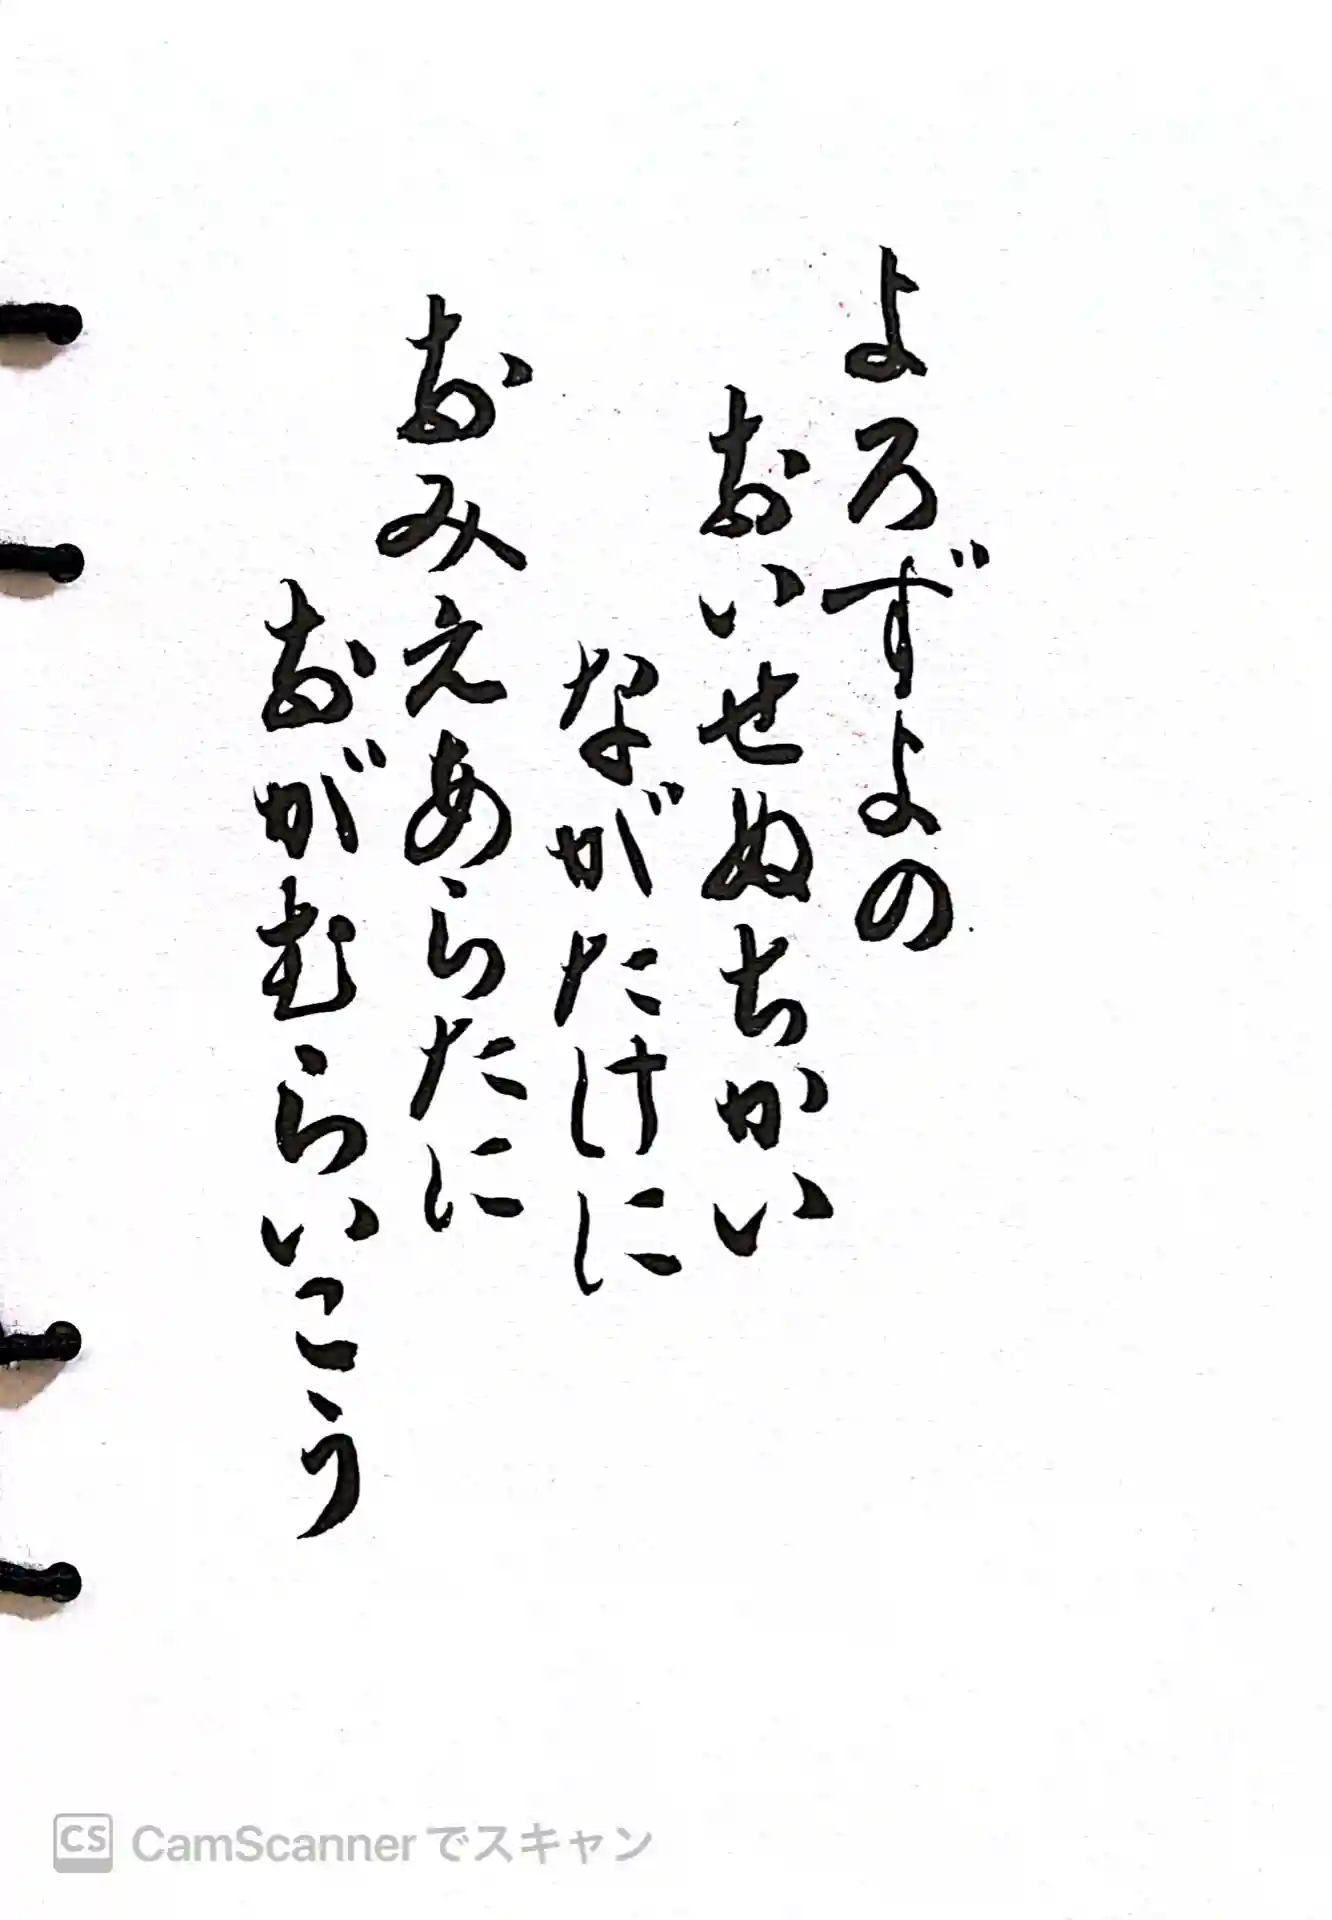 よろずよの
おいせぬちかい
ながたけに
おみえあらたに
おがむらいこう
CS CamScannerでスキャン